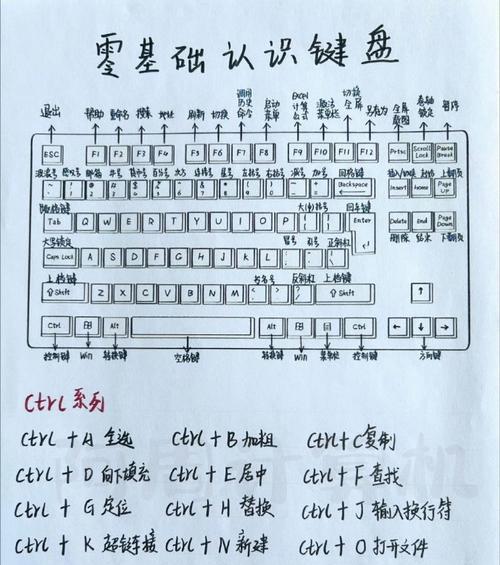 零基础认识键盘
退出 帮助 重命名 搜索 地址 刷新 切换 调用历史命令 启动菜单 EXCEL计算公式 激活菜单栏 切换全屏 另存为 全屏截图 卷轴锁定 暂停
ESC F1 F2 F3 F4 F5 F6 F7 F8 F9 F10 F11 F12 Prtsc Scroll Lock Pause Break
波浪号 感叹号 邮箱 井号 美元号 百分号 次方 连接号 星号 左括号 右括号 减号 加号 回格键 插入/切换 起始 上翻页
Backspace Insert home Page UP
大(中)括号 回车键
Tab Q W E R T Y U I O P Enter Delete End Page Down
大写锁定 冒号 引号 正斜杠 删除 结束 下翻页
Caps Lock A S D F G H J K L
上档键 书名号 反斜杠 上档键
⇧Shift Z X C V B N M ⇧Shift ↑
Ctrl 田 Alt Alt 田 目 Ctrl ← ↓ →
控制键 Win 转换键 空格键 转换键 Win 菜单栏 控制键 方向键
Ctrl系列
Ctrl + A 全选 Ctrl + B 加粗 Ctrl + C 复制
Ctrl + D 向下填充 Ctrl + E 居中 Ctrl + F 查找
Ctrl + G 定位 Ctrl + H 替换 Ctrl + J 输入换行符
Ctrl + K 超链接 Ctrl + N 新建 Ctrl + O 打开文件